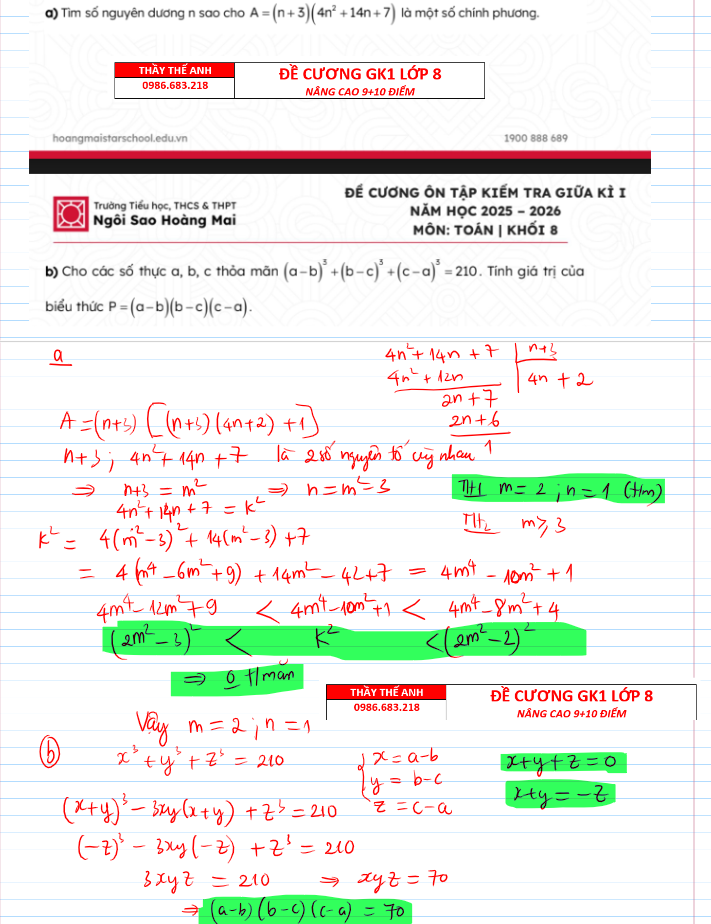 a) Tìm số nguyên dương n sao cho A = (n+3)(4n² + 14n + 7) là một số chính phương.
THẦY THẾ ANH
0986.683.218
ĐỀ CƯƠNG GK1 LỚP 8
NÂNG CAO 9+10 ĐIỂM
hoangmaistarschool.edu.vn 1900 888 689
Trường Tiểu học, THCS & THPT
Ngôi Sao Hoàng Mai
ĐỀ CƯƠNG ÔN TẬP KIỂM TRA GIỮA KÌ I
NĂM HỌC 2025 – 2026
MÔN: TOÁN | KHỐI 8
b) Cho các số thực a, b, c thỏa mãn (a−b)³ + (b−c)³ + (c−a)³ = 210. Tính giá trị của
biểu thức P = (a−b)(b−c)(c−a).
a
4n² + 14n + 7 | n+3
4n² + 12n | 4n + 2
2n + 7
2n + 6
1
A = (n+3) [(n+3)(4n+2) + 1]
n+3 ; 4n² + 14n + 7 là 2 số nguyên tố cùng nhau
⇒ n+3 = m² ⇒ n = m² − 3
4n² + 14n + 7 = k²
TH1 m = 2 ; n = 1 (t/m)
TH2 m ≥ 3
k² = 4(m² − 3)² + 14(m² − 3) + 7
= 4(m⁴ − 6m² + 9) + 14m² − 42 + 7 = 4m⁴ − 10m² + 1
4m⁴ − 12m² + 9 < 4m⁴ − 10m² + 1 < 4m⁴ − 8m² + 4
(2m² − 3)² < k² < (2m² − 2)²
⇒ 0 t/mãn
THẦY THẾ ANH
0986.683.218
ĐỀ CƯƠNG GK1 LỚP 8
NÂNG CAO 9+10 ĐIỂM
Vậy m = 2 ; n = 1
b
x³ + y³ + z³ = 210
{ x = a−b
y = b−c
z = c−a
x+y+z = 0
x+y = −z
(x+y)³ − 3xy(x+y) + z³ = 210
(−z)³ − 3xy(−z) + z³ = 210
3xyz = 210 ⇒ xyz = 70
⇒ (a−b)(b−c)(c−a) = 70